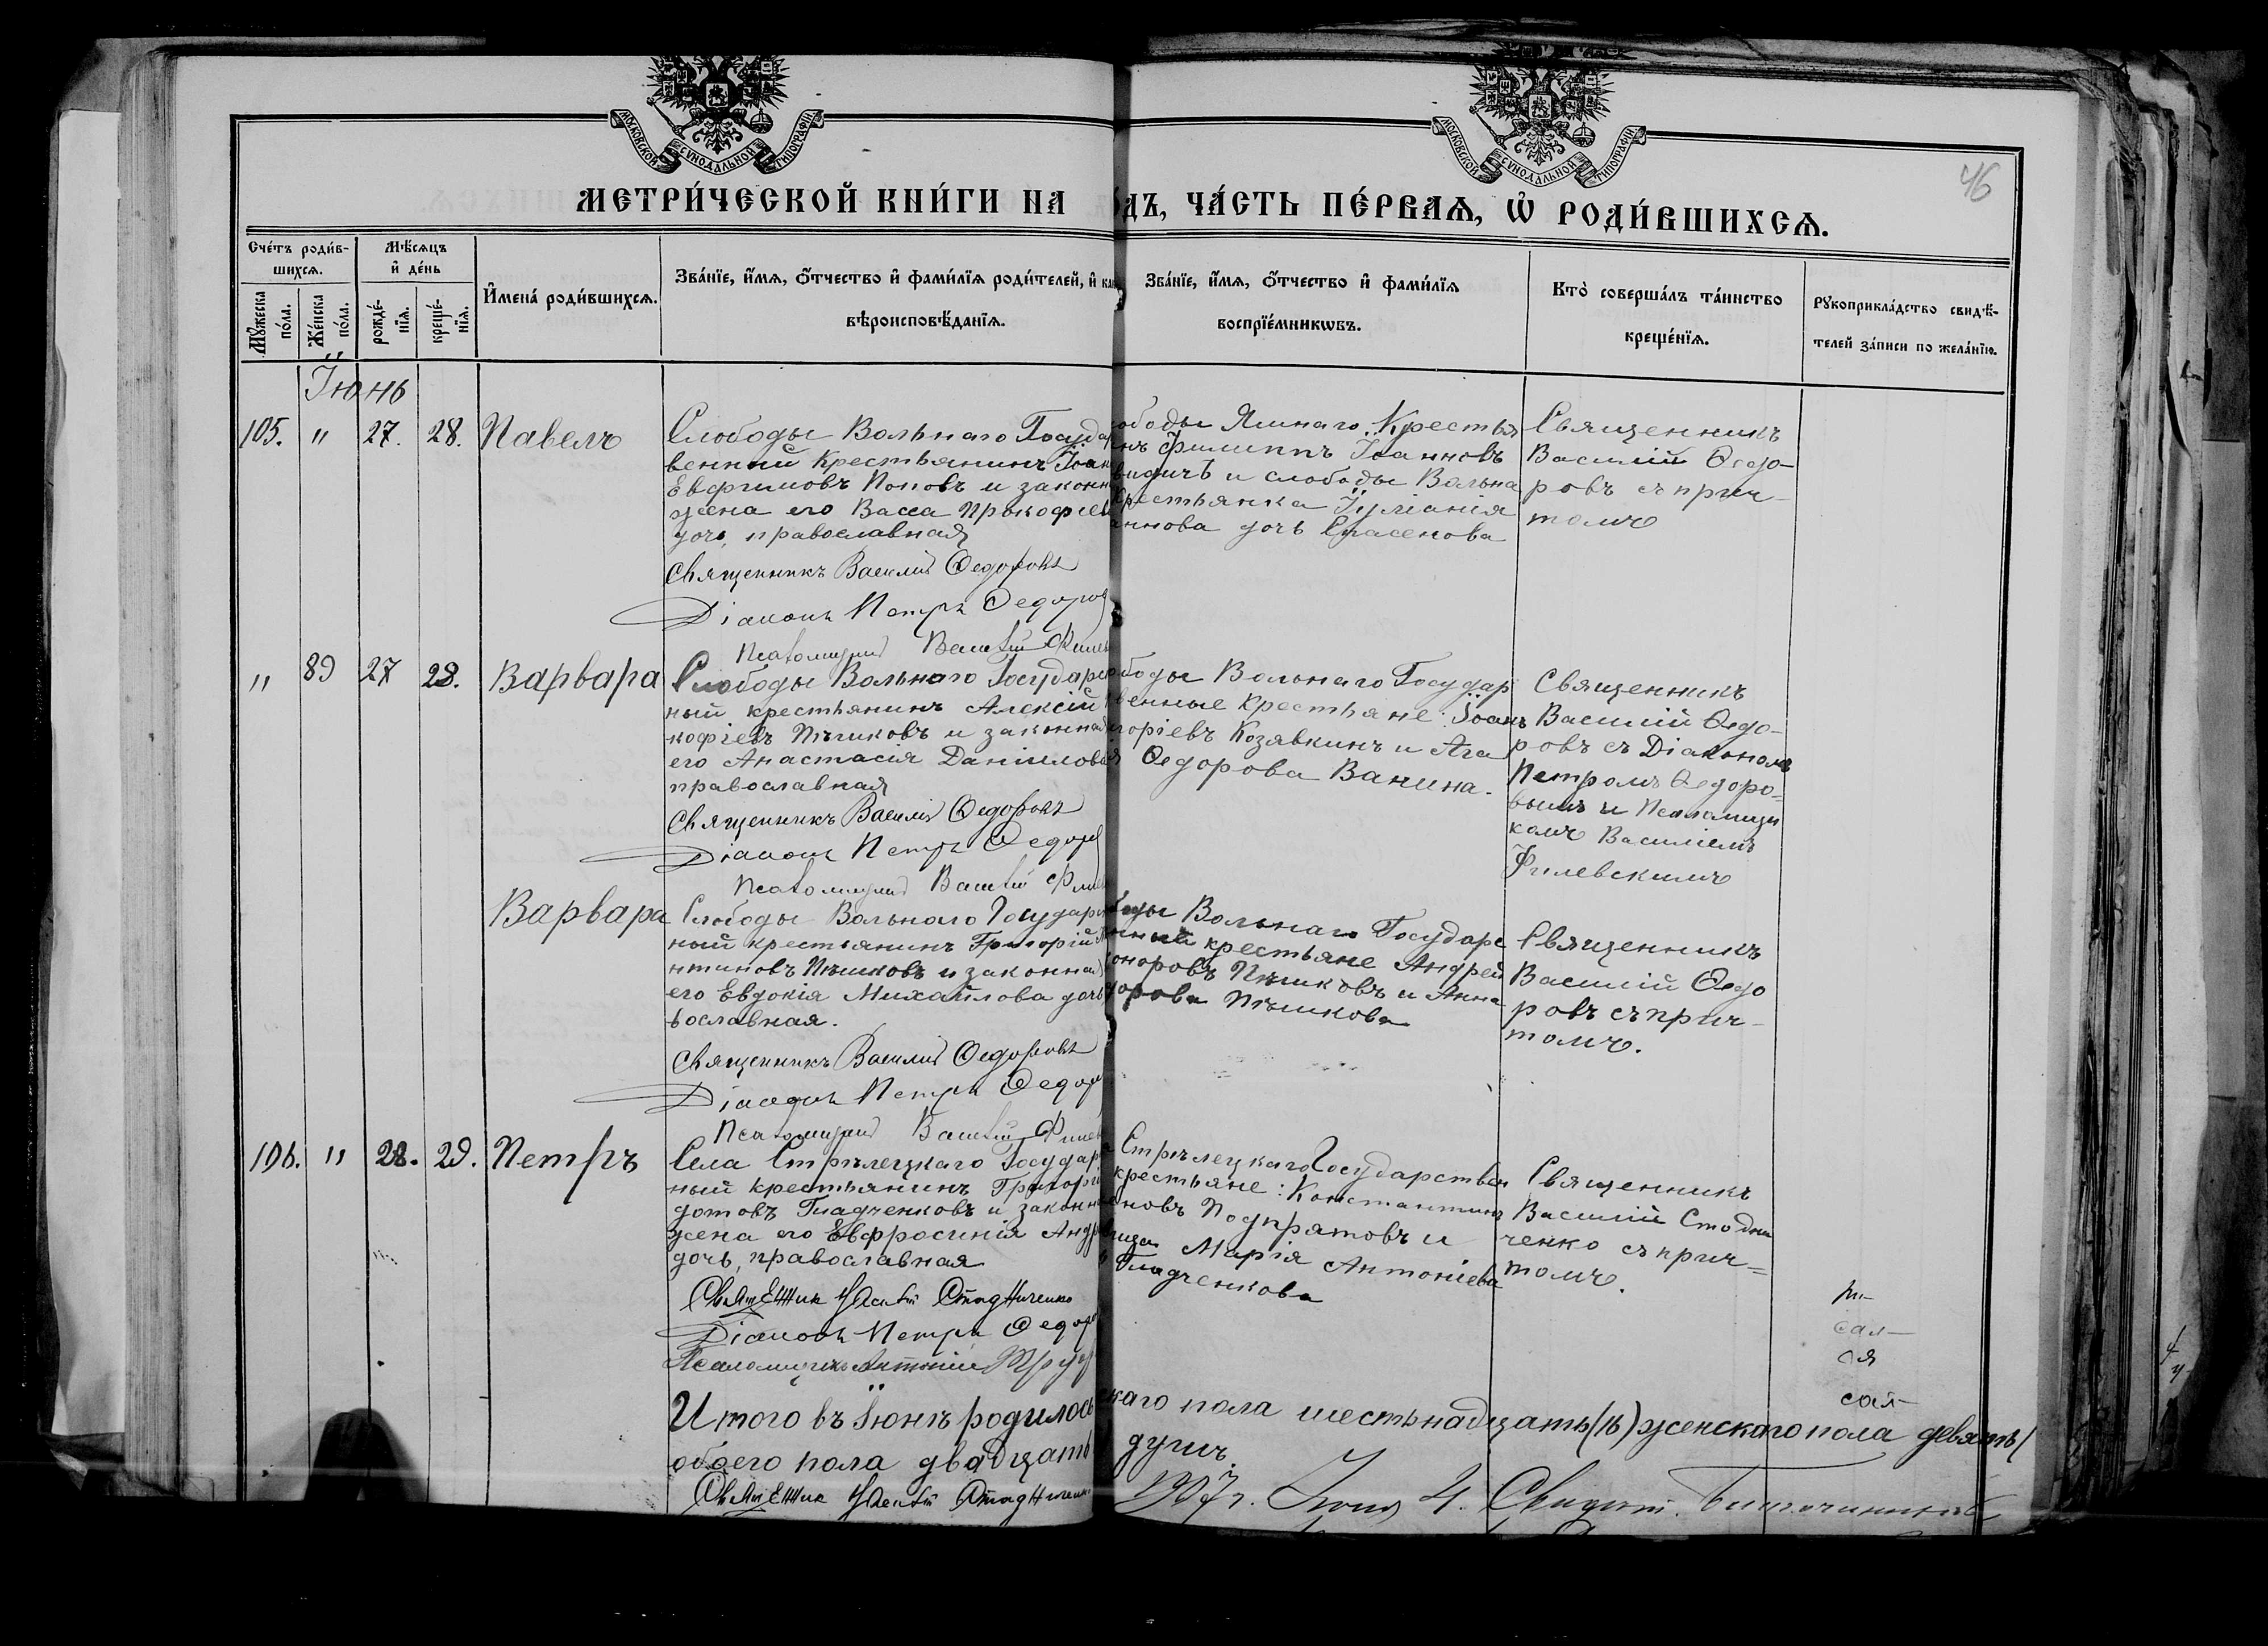 МОСКОВСКОЙ СѴНОДАЛЬНОЙ ТИПОГРАФІИ
МОСКОВСКОЙ СѴНОДАЛЬНОЙ ТИПОГРАФІИ
46
МЕТРИ́ЧЕСКОЙ КНИ́ГИ НА
ДЪ, ЧА́СТЬ ПЕ́РВАѦ, Ѡ҆ РОДИ́ВШИХСѦ.
Сче́тъ роди́в-
шихсѧ.
Мꙋжеска по́ла.
Же́нска по́ла.
Мѣ́сѧцъ
и҆ де́нь
рожде́-
нїѧ.
креще́-
нїѧ.
И҆мена̀ роди́вшихсѧ.
Зва́нїе, и҆́мѧ, ѻ҆́тчество и҆ фами́лїѧ роди́телей, и҆ как
вѣроисповѣ́данїѧ.
Зва́нїе, и҆́мѧ, ѻ҆́тчество и҆ фами́лїѧ
воспрїе́мникѡвъ.
Кто̀ соверша́лъ та́инство
креще́нїѧ.
Рꙋкоприкла́дство свидѣ́-
телей за́писи по жела́нїю.
Іюнь
105. " 27. 28. Павелъ
Слободы Вольнаго Государ
венный крестьянинъ Іоан
Евфимовъ Поповъ и законн
жена его Васса Прокофіев
дочь, православная
Священникъ Василій Ѳедоровъ
Діаконъ Петръ Ѳедоров
Псаломщикъ Василій Филев
ободы Ямнаго Крестья
нъ Филиппъ Іоанновъ
и слободы Вольна
крестьянка Іуліанія
аннова дочь
Священникъ
Василій Ѳедо-
ровъ съ прич-
томъ
" 89 27 28. Варвара
Слободы Вольнаго Государс
ный крестьянинъ Алексій
кофіевъ Пѣшковъ и законная
его Анастасія Даніилова
православная
Священникъ Василій Ѳедоровъ
Діаконъ Петръ Ѳедоров
Псаломщикъ Василій Филев
ободы Вольнаго Государ
венные крестьяне: Іоанъ
горіевъ Козявкинъ и Ага
Ѳедорова Ванина.
Священникъ
Василій Ѳедо-
ровъ съ Діакономъ
Петромъ Ѳедоро-
вымъ и Псаломщи
комъ Василіемъ
Филевскимъ
Варвара
Слободы Вольнаго Государс
ный крестьянинъ Григорій
нтиновъ Пѣшковъ и законная
его Евдокія Михайлова дочь
вославная.
Священникъ Василій Ѳедоровъ
Діаконъ Петръ Ѳедоров
Псаломщикъ Василій Филев
боды Вольнаго Государс
нный крестьяне Андрей
оноровъ Пѣшковъ и Анна
дорова Пѣшкова
Священникъ
Василій Ѳедо
ровъ съ прич-
томъ.
106. " 28. 29. Петръ
Села Стрѣлецкаго Государс
ный крестьянинъ Григорі
дотовъ Гладченковъ и законн
жена его Евфросинія Андр
дочь, православная
Священник Стадниченко
Діаконъ Петръ Ѳедоров
Псаломщикъ Антоній
Стрѣлецкаго Государствен
крестьяне: Константинъ
новъ Подпрятовъ и
ица Марія Антоніева
Гладченкова
Священникъ
Василій Стадни
ченко съ прич=
томъ.
сая-
Итого въ Іюнѣ родилось
обоего пола двадцать
Священник Стадниченко
скаго пола шестьнадцать (16) женскаго пола девять (
душъ.
1907 г.